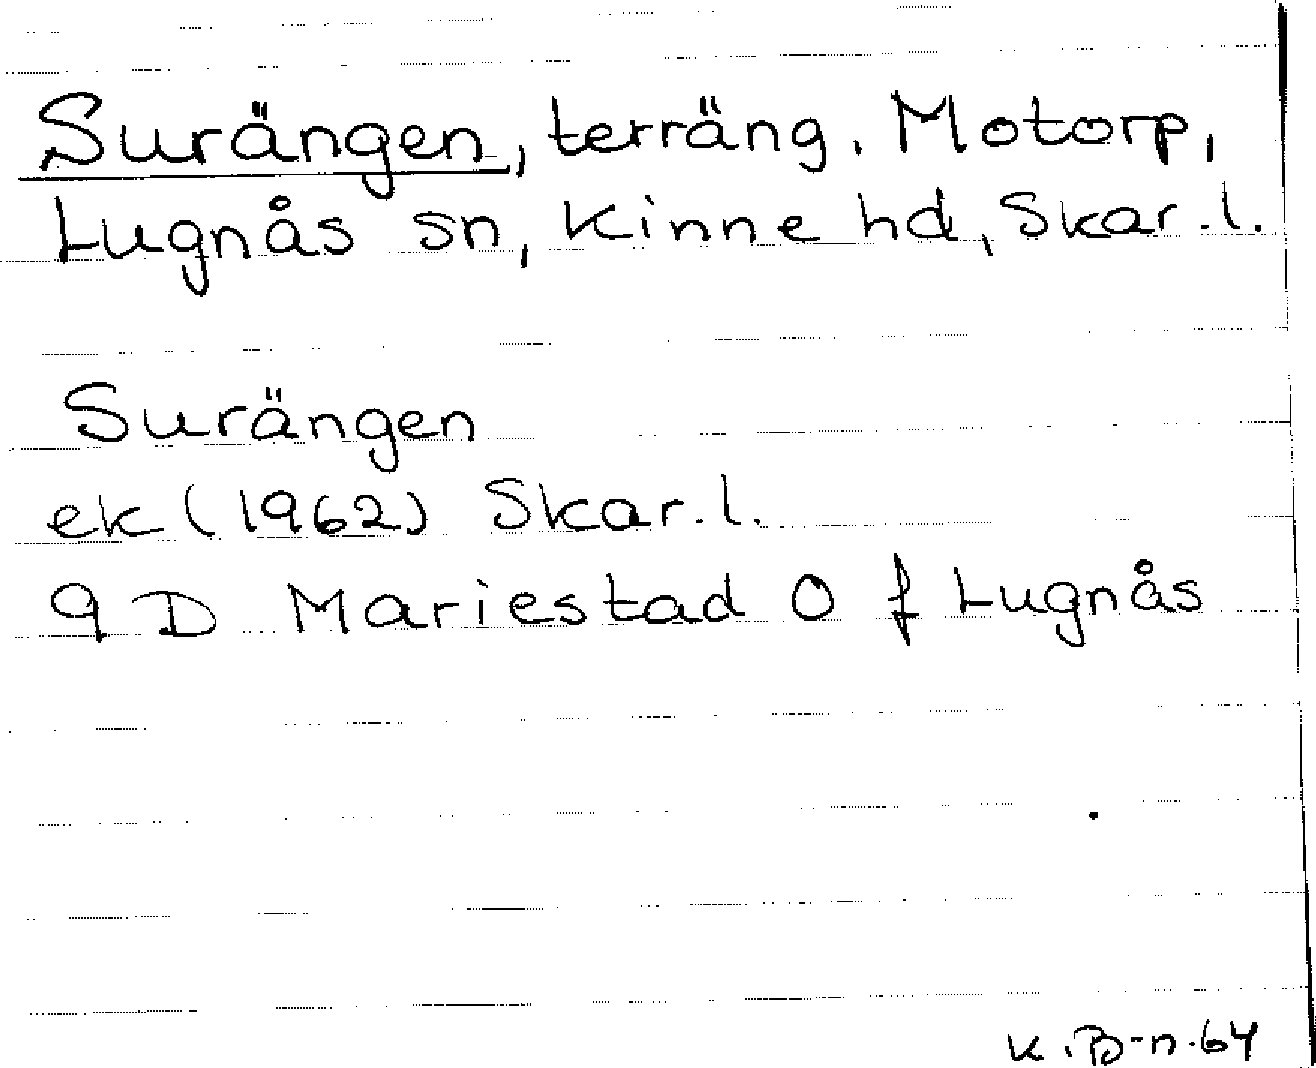 Surängen, terräng. Motorp,
Lugnås sn, Kinne hd, Skar. l.
Surängen
ek (1962) Skar. l.
9 D Mariestad O f Lugnås
K. B-n. 64